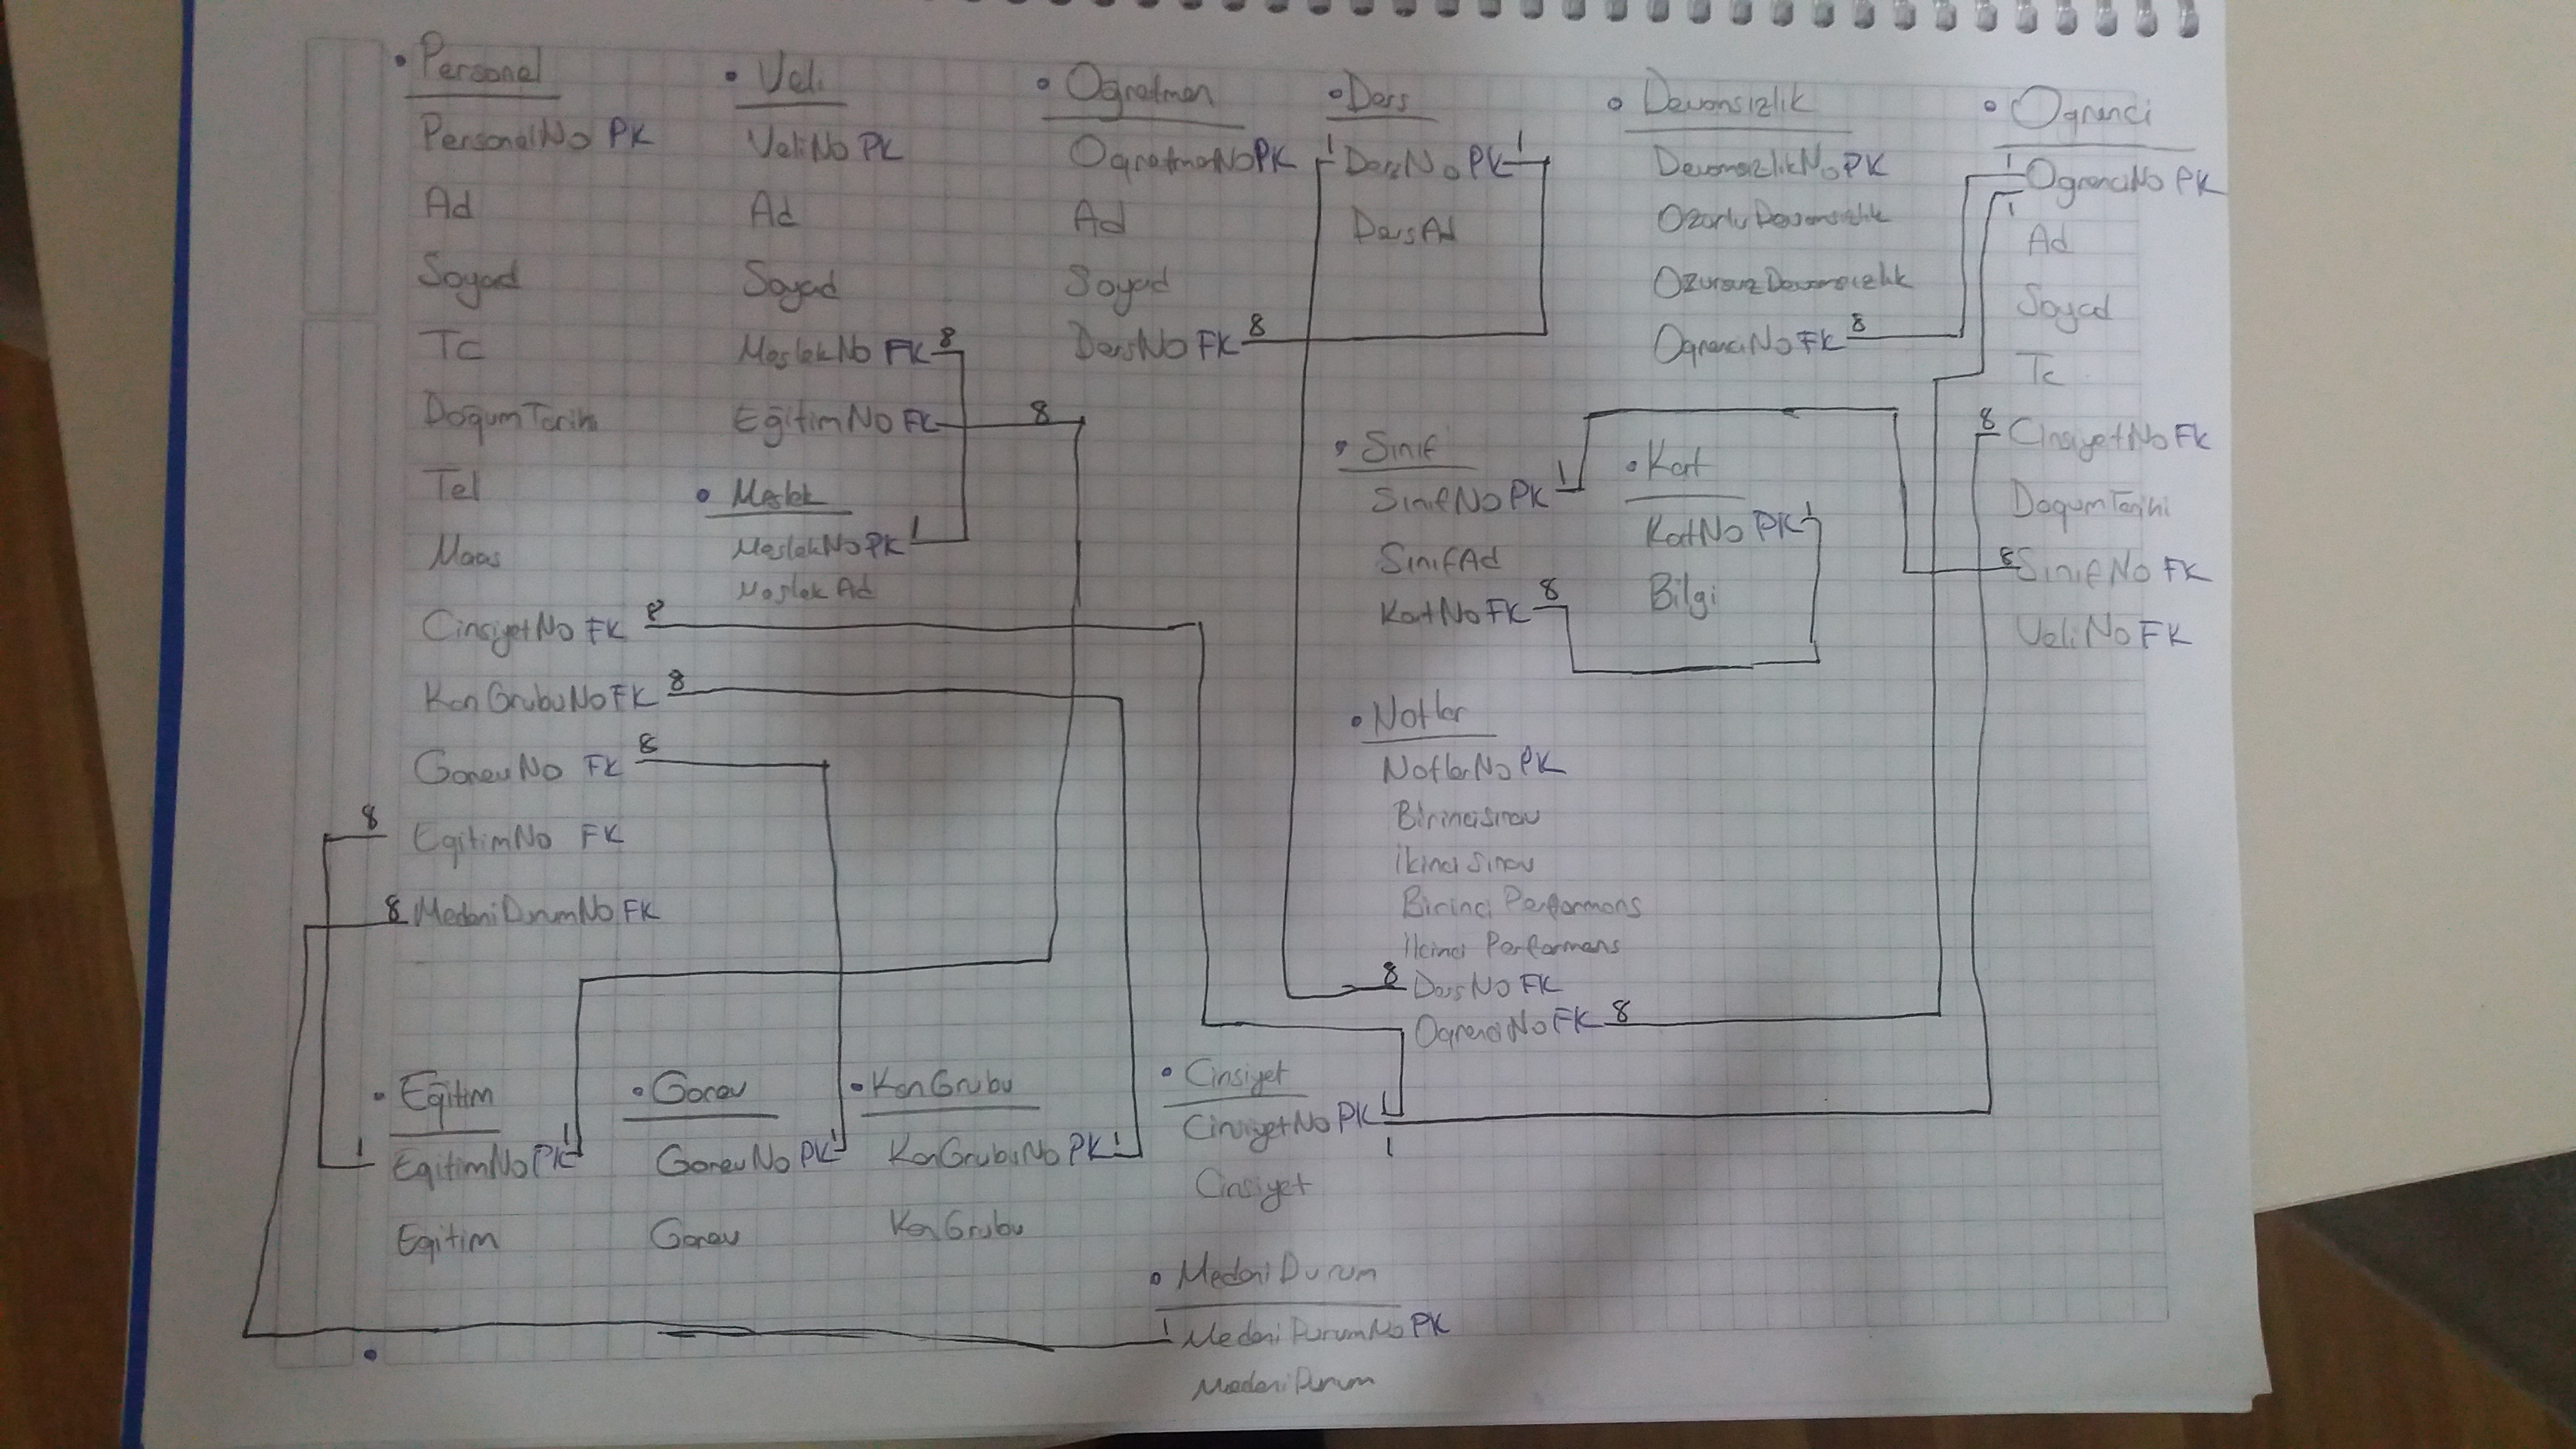 • Personel
PersonelNo PK
Ad
Soyad
Tc
DoğumTarih
Tel
Maas
CinsiyetNo FK 8
KanGrubuNo FK 8
GorevNo FK 8
8 EgitimNo FK
8 MedeniDurumNo FK
• Veli
VeliNo PK
Ad
Soyad
MeslekNo FK 8
EğitimNo FK 8
• Meslek
MeslekNo PK 1
MeslekAd
• Ogretmen
OgretmenNo PK
Ad
Soyad
DersNo FK 8
• Ders
1 DersNo PK 1
DersAd
• Devamsizlik
DevamsizlikNo PK
OzurluDevamsizlik
OzursuzDevamsizlik
OgrenciNo FK 8
• Ogrenci
1 OgrenciNo PK
1
Ad
Soyad
Tc
8 CinsiyetNo FK
DogumTarihi
8 SinifNo FK
VeliNo FK
• Sinif
SinifNo PK 1
SinifAd
KatNo FK 8
• Kat
KatNo PK 1
Bilgi
• Notlar
NotlarNo PK
BirinciSinav
IkinciSinav
Birinci Performans
Ikinci Performans
8 DersNo FK
OgrenciNo FK 8
• Eğitim
1 EgitimNo PK 1
Egitim
• Gorev
GorevNo PK 1
Gorev
• KanGrubu
KanGrubuNo PK 1
KanGrubu
• Cinsiyet
CinsiyetNo PK 1
1
Cinsiyet
• MedeniDurum
1 MedeniDurumNo PK
MedeniDurum